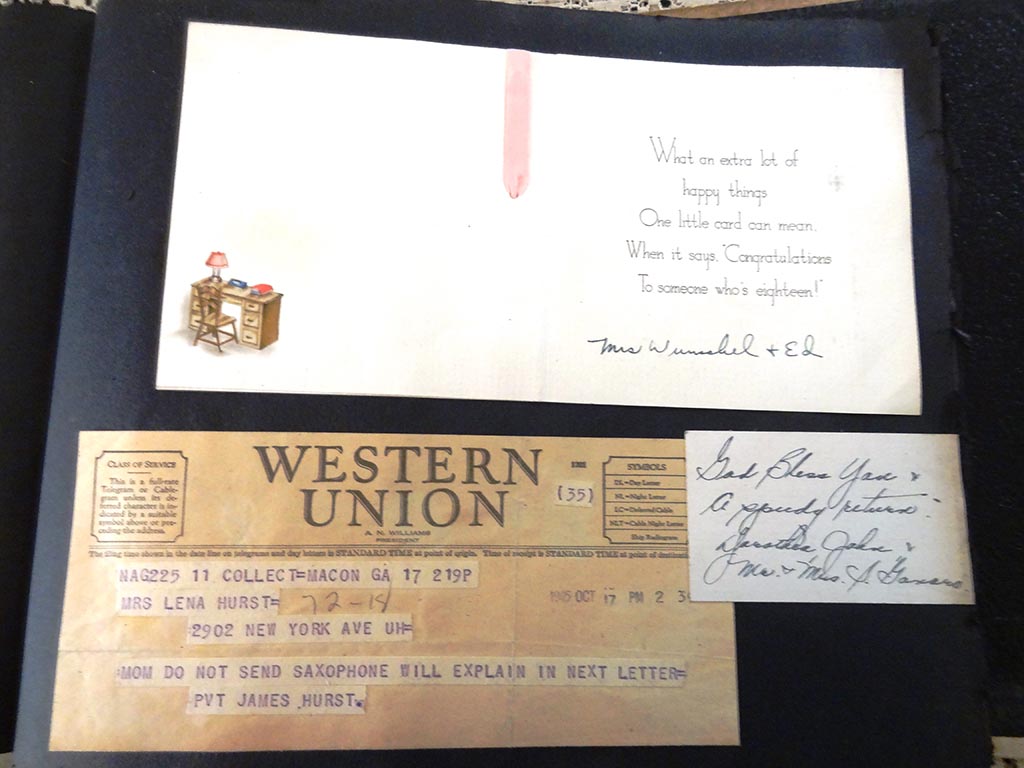 What an extra lot of
happy things
One little card can mean,
When it says, "Congratulations
To someone who's eighteen!"
Mrs Wunschel + Ed
CLASS OF SERVICE
This is a full-rate
Telegram or Cable-
gram unless its de-
ferred character is in-
dicated by a suitable
symbol above or pre-
ceding the address.
WESTERN
UNION
A. N. WILLIAMS
PRESIDENT
1201
(35)
SYMBOLS
DL=Day Letter
NL=Night Letter
LC=Deferred Cable
NLT=Cable Night Letter
Ship Radiogram
The filing time shown in the date line on telegrams and day letters is STANDARD TIME at point of origin. Time of receipt is STANDARD TIME at point of
NAG225 11 COLLECT=MACON GA 17 219P
MRS LENA HURST=
OCT 17 PM 2
2902 NEW YORK AVE UH=
MOM DO NOT SEND SAXOPHONE WILL EXPLAIN IN NEXT LETTER=
PVT JAMES HURST.
God Bless You &
A speedy return.
Dorothea John &
Mr. & Mrs. S